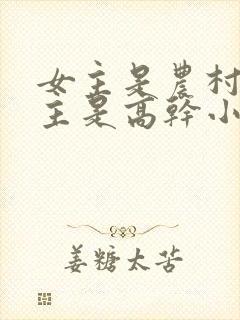 女主是農村
主是高幹小
姜糖太苦